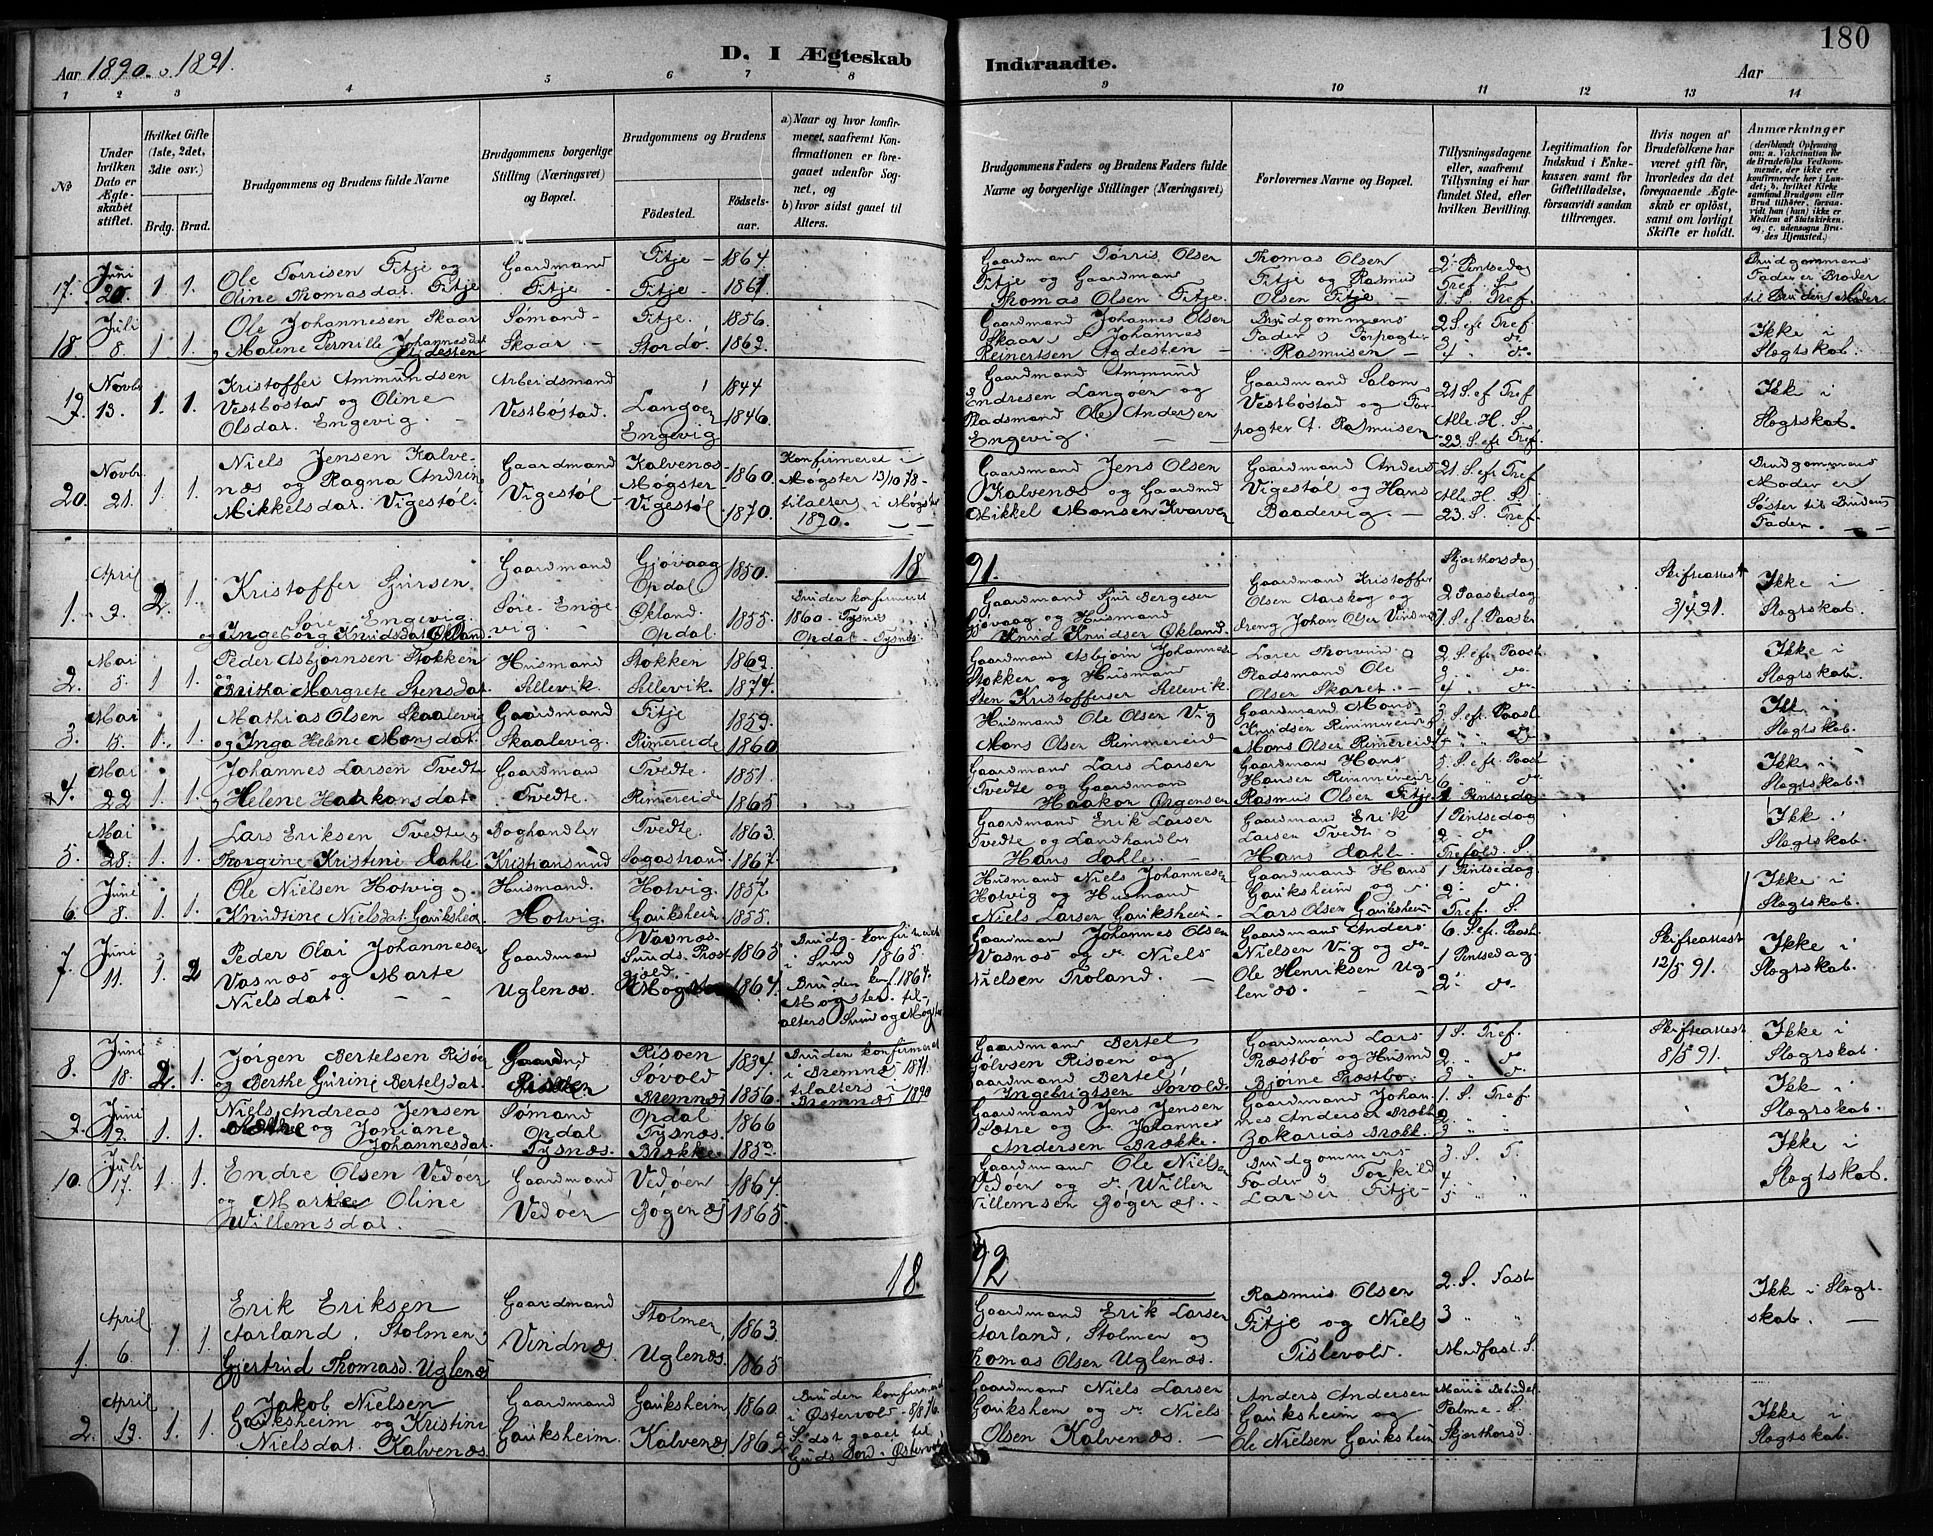 Aar 1890 o 1891.
D. I Ægteskab Indtraadte.
180
Aar
1 2 3 4 5 6 7 8 9 10 11 12 13 14
No
Under hvilken Dato er Ægteskabet stiftet.
Hvilket Gifte (1ste, 2det, 3die osv.)
Brdg. Brud.
Brudgommens og Brudens fulde Navne
Brudgommens borgerlige Stilling (Næringsvei) og Bopæl.
Brudgommens og Brudens
Fødested.
Fødselsaar.
a) Naar og hvor konfirmeret, saafremt Konfirmationen er foregaaet udenfor Sognet, og
b) hvor sidst gaaet til Alters.
Brudgommens Faders og Brudens Faders fulde Navne og borgerlige Stillinger (Næringsvei)
Forlovernes Navne og Bopæl.
Tillysningsdagene eller, saafremt Tillysning ei har fundet Sted, efter hvilken Bevilling.
Legitimation for Indskud i Enkekassen samt for Giftetilladelse, forsaavidt saadan tiltrænges.
Hvis nogen af Brudefolkene har været gift før, hvorledes da det foregaaende Ægteskab er opløst, samt om lovligt Skifte er holdt.
Anmærkninger
17. Juni 20. 1 1. Ole Torrisen Fitje og
Oline Thomasdat. Fitje
Gaardmand Fitje
Fitje 1864
Fitje 1867
Gaardmand Tørris Olsen
Fitje og Gaardmand
Thomas Olsen Fitje.
Thomas Olsen
Fitje og Rasmus
Olsen Fitje
2 Pintsedag
Tref. S.
1 S. Tref.
Brudgommens
Fader er Broder
til Brudens Moder.
18. Juli 8. 1 1. Ole Johannesen Skaar
Malene Pernille Johannesdat
Agdesten
Sømand
Skaar
Fitje. 1856.
Stordø 1862.
Gaardmand Johannes Olsen
Skaar o Johannes
Reinertsen Agdesten
Brudgommens
Fader o Forpagter
Rasmusen
2 S. ef Tref
3 " do
4 " do
Ikke i
Slægtskab.
19. Novbr 13. 1. 1. Kristoffer Ammundsen
Vestbøstad og Oline
Olsdat. Engevig.
Arbeidsmand
Vestbøstad.
1844
Langøen 1846.
Engevig
Gaardmand Ammund
Endresen Langøen og
Pladsmand Ole Andersen
Engevig.
Gaardmand Salom
Vestbøstad og Forpagter
Rasmusen
21 S. ef Tref
Alle H. S.
23. S. eft Tref.
Ikke i
Slægtskab.
20. Novbr 21. 1. 1. Niels Jensen Kalvenæs
og Ragna Andrine
Mikkelsdat. Vigestøl.
Gaardmand
Vigestøl
Kalvenæs 1860.
Møgster
Vigestøl 1870.
Konfirmeret i
Møgster 13/10 78
tilalters i Møgster
1890.
Gaardmand Jens Olsen
Kalvenæs og Gaardmd
Mikkel Monsen Kvarven
Gaardmand Anders
Vigestøl og Hans
Baadevig.
21. S. ef Tref.
Alle H. S.
23. S. Tref.
Brudgommens
Moder er
Søster til Brudens
Fader.
1891.
1. April 9. 2. 1. Kristoffer Sjursen
Søre Engevig
og Ingeborg Knudsdat Økland
Gaardmand
Søre Engevig
Gjøvaag 1850.
Opdal
Økland. 1855
Opdal.
Bruden konfirmeret
1860 Tysnæs
Opdal Tysnæs.
Gaardmand Sjur Bergesen
Gjøvaag og Husmand
Knud Knudsen Økland
Gaardmand Kristoffer
Olsen Aarskog og
dreng Johan Olsen Vindnæs
Skjærthorsdag
2 Paaskedag
1 S. ef Paaske
Skifteattest
3/4 91.
Ikke i
Slægtskab.
2. Mai 5. 1 1. Peder Asbjørnsen Stokken
og Britha Margrete Stensdat.
Husmand
Sellevik.
Stokken 1869
Sellevik. 1874.
Gaardmand Asbjørn Johannes
Stokken og Husmand
Sten Kristoffersen Sellevik.
Lærer Thorvin o
Pladsmand Ole
Olsen Skaret.
2. S. ef. Paask
3 " do
4 " do
Ikke i
Slægtskab.
3. Mai 15. 1. 1. Mathias Olsen Skaalevig
og Inga Helene Monsdat.
Gaardmand
Skaalevig.
Fitje 1859.
Rimereide 1860
Husmand Ole Olsen Vig
Mons Olsen Rimmereid
Gaardmand Mons
Knudsen Rimmereide
Mons Olsen Rimmereide
3 S. ef. Paask
4 " do
Slægtskab.
4. Mai 22 1. 1. Johannes Larsen Tvedte
o Helene Haakonsdat.
Gaardmand
Tvedte.
Tvedte. 1851.
Rimereide 1865
Gaardmand Lars Larsen
Tvedte og Gaardman
Haakon Ørgensen
Gaardmand Hans
Hansen Rimmereid
Rasmus Olsen Fitje
5. S. eft. Paask
6 " do
1 Pintsedag
Ikke i
Slægtskab.
5. Mai 28. 1. 1. Lars Eriksen Tvedte o
Thorgine Kristine Dahle
Boghandler
Kristiansund
Tvedte. 1863.
Sagastrand 1867.
Gaardmand Erik Larsen
Tvedte og Landhandler
Hans Dahle.
Gaardmand Erik
Larsen Tvedt o
Hans Dahle.
1 Pintsedag
2 " do
Trefold. S.
Ikke i
Slægtskab.
6. Juni 8. 1. 1. Ole Nielsen Hotvig o
Knudtine Nielsdat. Gauksheim
Husmand.
Hotvig.
Hotvig. 1857.
Gauksheim 1855.
Husmand Niels Johannesen
Hotvig og Husmand
Niels Larsen Gauksheim
Gaardmand Hans
Gauksheim og
Lars Olsen Gauksheim
1 Pintsedag
2 " do
Tref. S.
Ikke i
Slægtskab.
7. Juni 11. 1. 2 Peder Olai Johannesen
Vasnæs og Marte
Nielsdat.
Gaardman
Uglenæs.
Vasnæs 1865
Sunds Præstegjeld.
Møgster 1864.
Brudg. konfirmeret
i Sund 1865.
Bruden konf. 1864.
Møgster. tilalters
Sund og Møgster
Gaardmand Johannes Olsen
Vasnæs og do Niels
Nielsen Troland.
Gaardmand Anders
Nielsen Vig og do
Ole Henriksen Uglenæs.
6. S. ef. Paask
1 Pintsedag.
2 " do
Skifteattest
12/5 91.
Ikke i
Slægtskab.
8. Juni 18. 2. 1. Jørgen Bertelsen Risøen
og Berthe Gurine Bertelsdat.
Gaardmd
Risøen
Risøen 1834.
Søvold
Bremnæs 1856.
Bruden konfirmeret
i Bremnæs 1871.
tilalters i
Bremnæs 1890
Gaardmand Bertel
Sjølvsen Risøen og
Gaardmand Bertel
Ingebrigtsen Søvold.
Gaardmand Lars
Præstbø og Husmd
Bjørne Præstbø.
1 S. Tref.
2 " do
3 " do
Skifteattest
8/5 91.
Ikke i
Slægtskab.
9. Juni 19. 1. 1. Niels Andreas Jensen
Sætre og Joniane
Johannesdat.
Sømand
Opdal
Tysnæs.
Opdal 1866
Tysnæs.
Brække 1859.
Gaardmand Jens Jensen
Sætre og do Johannes
Andersen Brække.
Gaardmand Johannes
Andersen Brække
Zakarias Brække.
1. S. Tref
2 "
3 " "
Ikke i
Slægtskab.
10. Juli 17. 1. 1. Endre Olsen Vedøen
og Marthe Oline
Willemsdat.
Gaardmand
Vedøen
Vedøen 1864.
Bøgenæs 1865.
Gaardmand Ole Nielsen
Vedøen og do Willem
Willemsen Bøgenæs.
Brudgommens
Fader o Torkild
Larsen Fitje
3. S. T.
4. " "
5 " "
Ikke i
Slægtskab.
1892
1. April 6. 1 1. Erik Eriksen
Aarland, Stolmen,
Gjertrud Thomasd. Uglenæs
Gaardmand
Vindnæs.
Stolmen, 1863.
Uglenæs. 1865
Gaardmand Erik Larsen
Aarland, Stolmen og
Thomas Olsen Uglenæs.
Rasmus Olsen
Fitje og Niels
Tislevold.
2. S. Fast
3 " "
Midfast. S.
Ikke i Slægtskab.
2. April 19. 1. 1. Jakob Nielsen
Gauksheim og Kristine
Nielsdat. Kalvenæs.
Gaardmand
Gauksheim.
Gauksheim. 1860
Kalvenæs. 1862
Bruden konfirmeret
i Østervold 8/8 76.
Sidst gaaet til
Guds Bord. Østervold
Gaardmand Niels Larsen
Gauksheim og do Niels
Olsen Kalvenæs.
Anders Andersen
Gauksheim og
Ole Nielsen Gauksheim
Maria Bebudel
Palme S.
Skjærthorsd.
Ikke i
Slægtskab.